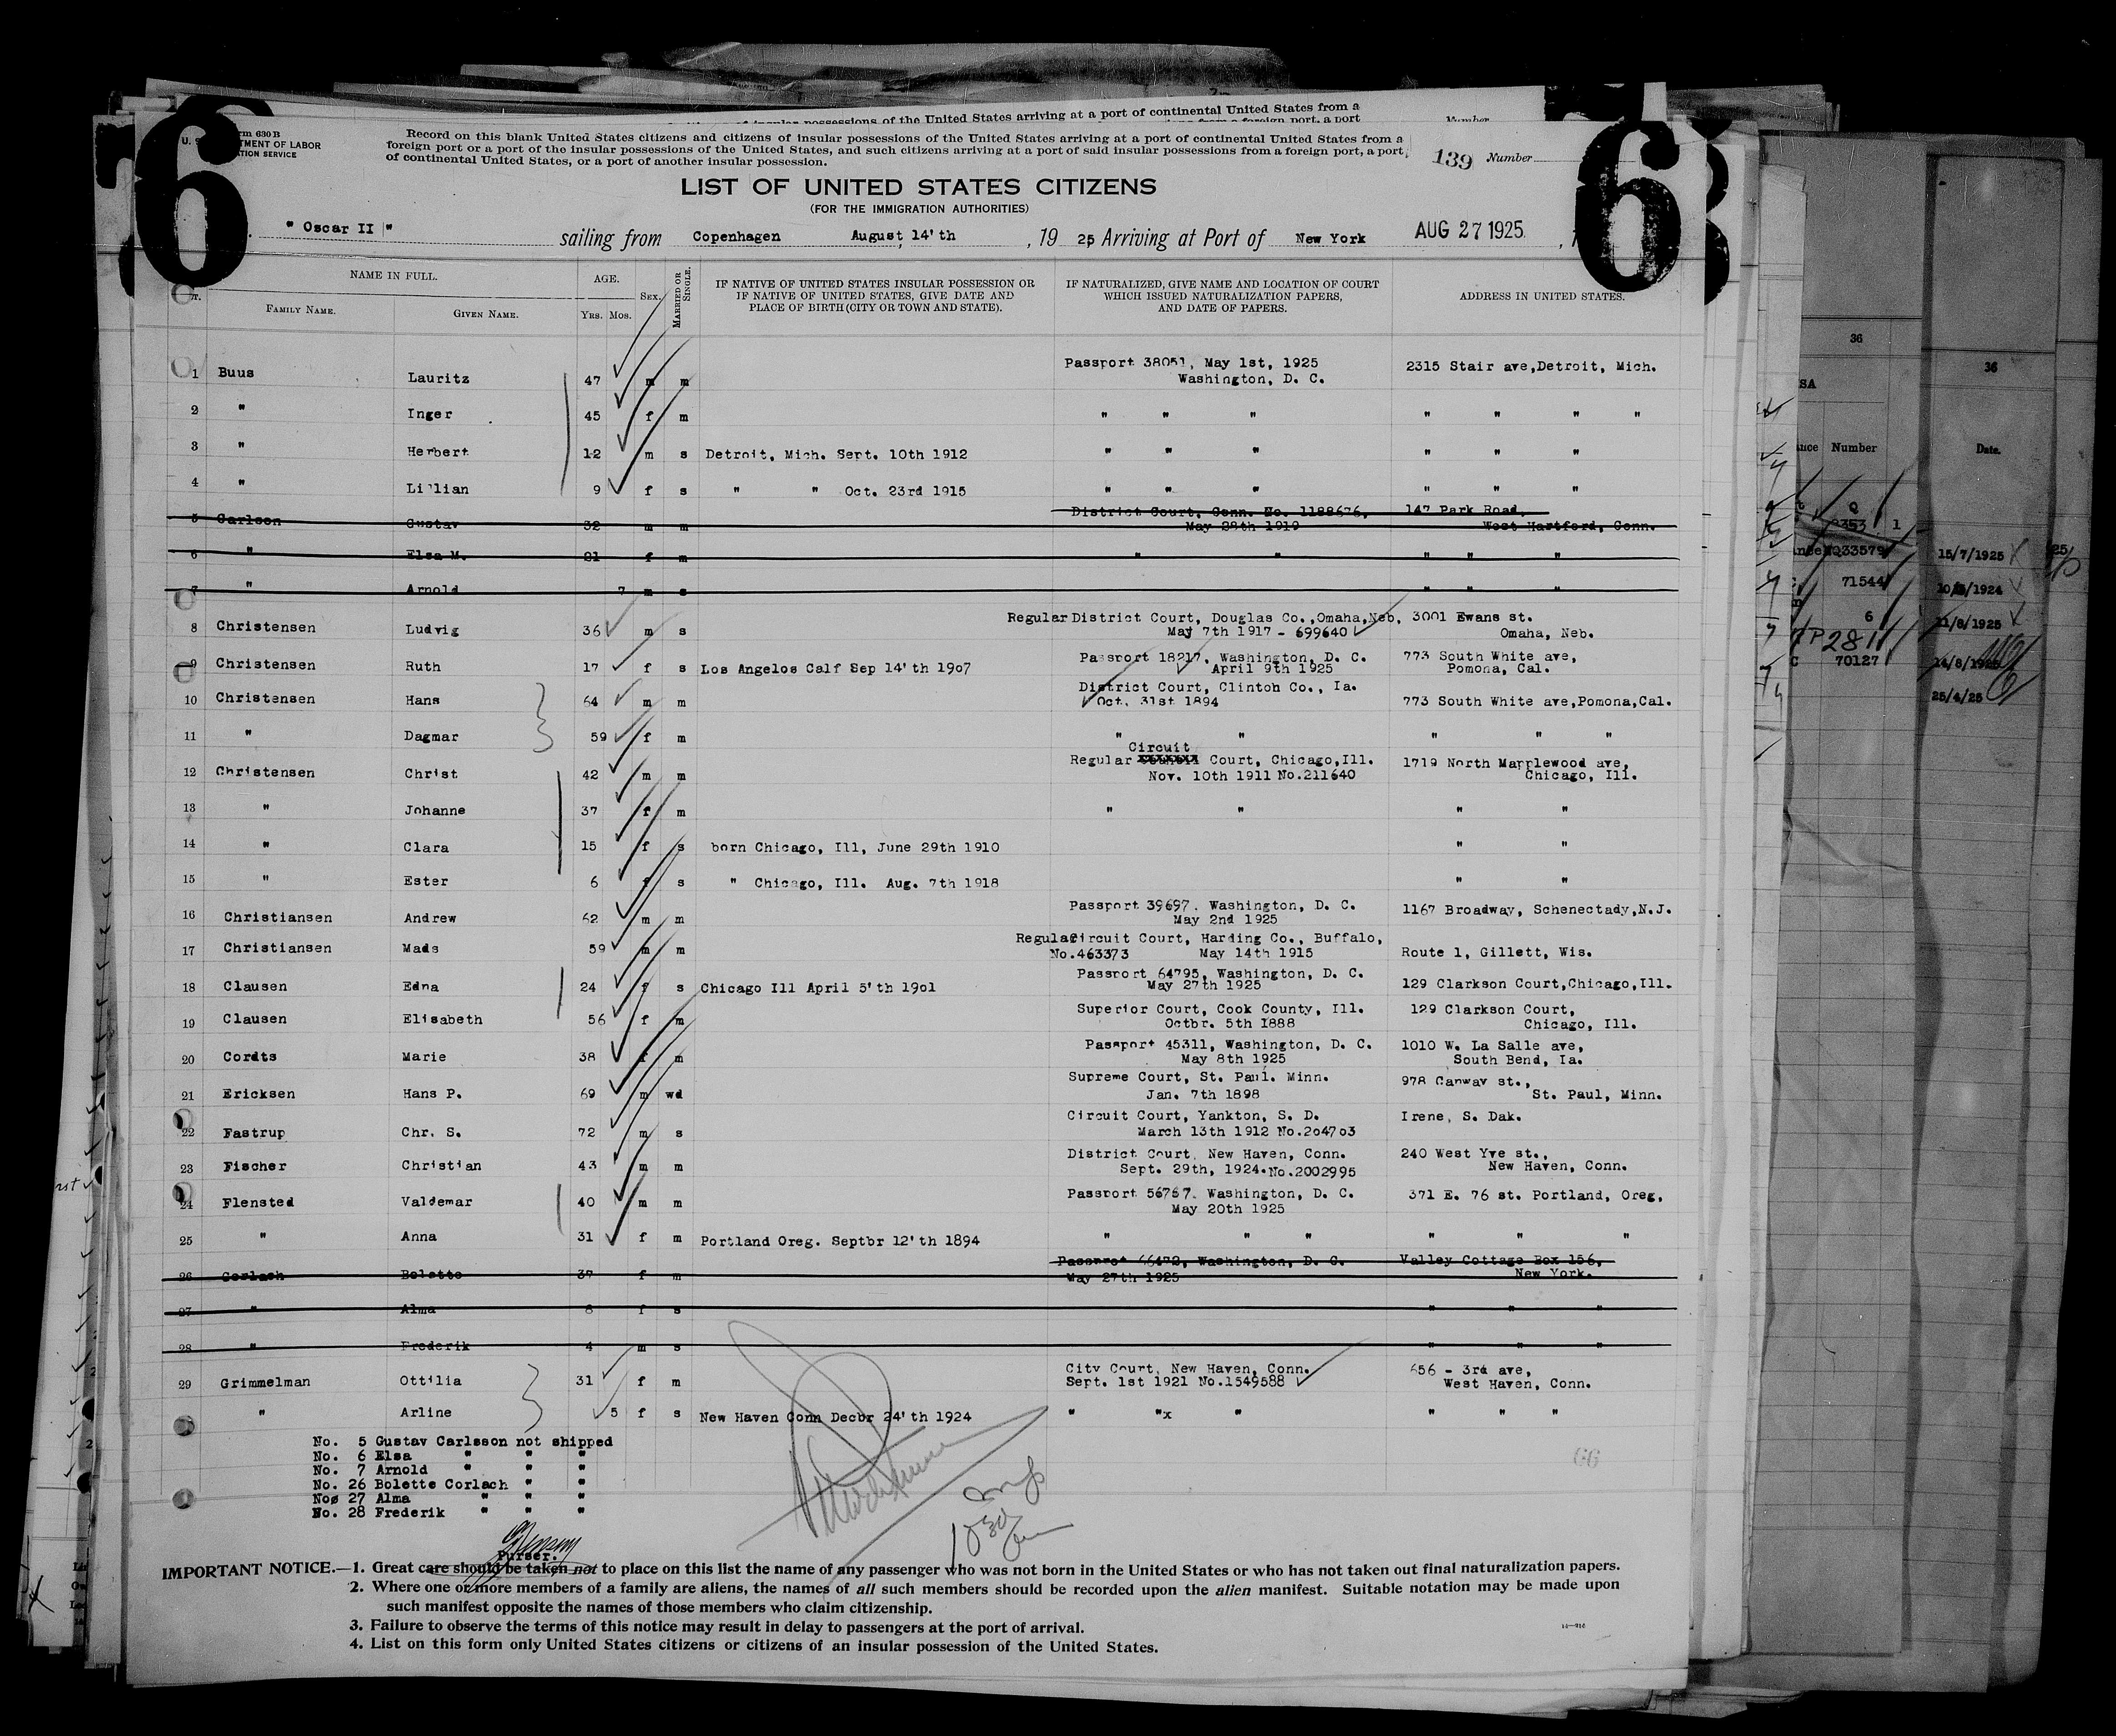 6
6
Form 630 B
U. S. DEPARTMENT OF LABOR
IMMIGRATION SERVICE
Record on this blank United States citizens and citizens of insular possessions of the United States arriving at a port of continental United States from a
foreign port or a port of the insular possessions of the United States, and such citizens arriving at a port of said insular possessions from a foreign port, a port
of continental United States, or a port of another insular possession.
139 Number
LIST OF UNITED STATES CITIZENS
(FOR THE IMMIGRATION AUTHORITIES)
" Oscar II " sailing from Copenhagen August 14'th , 19 25 Arriving at Port of New York AUG 27 1925
NAME IN FULL. AGE. SEX. MARRIED OR SINGLE. IF NATIVE OF UNITED STATES INSULAR POSSESSION OR IF NATIVE OF UNITED STATES, GIVE DATE AND PLACE OF BIRTH (CITY OR TOWN AND STATE). IF NATURALIZED, GIVE NAME AND LOCATION OF COURT WHICH ISSUED NATURALIZATION PAPERS, AND DATE OF PAPERS. ADDRESS IN UNITED STATES.
FAMILY NAME. GIVEN NAME. YRS. MOS.
1 Buus Lauritz 47 m m Passport 38051, May 1st, 1925 Washington, D. C. 2315 Stair ave,Detroit, Mich.
2 " Inger 45 f m " " " " " " "
3 " Herbert 12 m s Detroit, Mich. Sept. 10th 1912 " " " " " "
4 " Lillian 9 f s " " Oct. 23rd 1915 " " " " " "
5 Carlson Gustav 32 m m District Court, Conn. No. 1188676, May 28th 1919 147 Park Road, West Hartford, Conn.
6 " Elsa M. 21 f m " " " " "
7 " Arnold 7 m s " " "
8 Christensen Ludvig 36 m s Regular District Court, Douglas Co.,Omaha,Neb, May 7th 1917 - 699640 3001 Ewans st. Omaha, Neb.
9 Christensen Ruth 17 f s Los Angelos Calf Sep 14'th 1907 Passport 18217, Washington, D. C. April 9th 1925 773 South White ave, Pomona, Cal.
10 Christensen Hans 64 m m District Court, Clinton Co., Ia. Oct. 31st 1894 773 South White ave,Pomona,Cal.
11 " Dagmar 59 f m " " " " "
12 Christensen Christ 42 m m Regular Circuit Court, Chicago,Ill. Nov. 10th 1911 No.211640 1719 North Mapplewood ave, Chicago, Ill.
13 " Johanne 37 f m " " " "
14 " Clara 15 f s born Chicago, Ill, June 29th 1910 " "
15 " Ester 6 f s " Chicago, Ill. Aug. 7th 1918 " "
16 Christiansen Andrew 62 m m Passport 39697, Washington, D. C. May 2nd 1925 1167 Broadway, Schenectady,N.J.
17 Christiansen Mads 59 m m Regular Circuit Court, Harding Co., Buffalo, No.463373 May 14th 1915 Route 1, Gillett, Wis.
18 Clausen Edna 24 f s Chicago Ill April 5'th 1901 Passport 64795, Washington, D. C. May 27th 1925 129 Clarkson Court,Chicago,Ill.
19 Clausen Elisabeth 56 f m Superior Court, Cook County, Ill. Octbr. 5th 1888 129 Clarkson Court, Chicago, Ill.
20 Cordts Marie 38 f m Passport 45311, Washington, D. C. May 8th 1925 1010 W. La Salle ave, South Bend, Ia.
21 Ericksen Hans P. 69 m wd Supreme Court, St. Paul. Minn. Jan. 7th 1898 978 Canway st., St. Paul, Minn.
22 Fastrup Chr. S. 72 m s Circuit Court, Yankton, S. D. March 13th 1912 No.204703 Irene, S. Dak.
23 Fischer Christian 43 m m District Court, New Haven, Conn. Sept. 29th, 1924.No.2002995 240 West Yve st., New Haven, Conn.
24 Flensted Valdemar 40 m m Passport 56767. Washington, D. C. May 20th 1925 371 E. 76 st. Portland, Oreg,
25 " Anna 31 f m Portland Oreg. Septbr 12'th 1894 " " " " " "
26 Corlach Bolette 37 f m Passport 66472, Washington, D. C. May 27th 1925 Valley Cottage Box 156, New York.
27 " Alma 8 f s " " "
28 " Frederik 4 m s " " "
29 Grimmelman Ottilia 31 f m City Court, New Haven, Conn. Sept. 1st 1921 No.1549588 656 - 3rd ave, West Haven, Conn.
" Arline 5 f s New Haven Conn Decbr 24'th 1924 " "x " " " "
No. 5 Gustav Carlsson not shipped
No. 6 Elsa " " "
No. 7 Arnold " " "
No. 26 Bolette Corlach " "
No. 27 Alma " " "
No. 28 Frederik " " "
66
Purser.
IMPORTANT NOTICE.—1. Great care should be taken not to place on this list the name of any passenger who was not born in the United States or who has not taken out final naturalization papers.
2. Where one or more members of a family are aliens, the names of all such members should be recorded upon the alien manifest. Suitable notation may be made upon
such manifest opposite the names of those members who claim citizenship.
3. Failure to observe the terms of this notice may result in delay to passengers at the port of arrival.
4. List on this form only United States citizens or citizens of an insular possession of the United States.
36
36
Number
Date.
71544
70127
15/7/1925
25/4/25